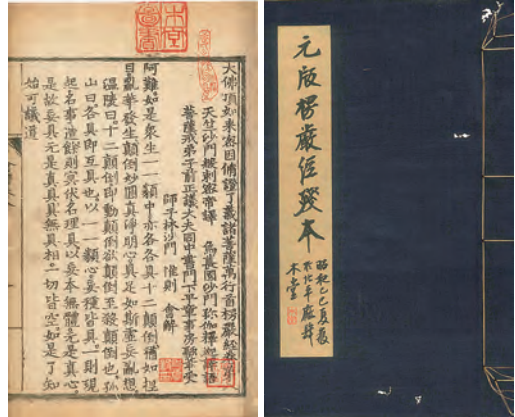 元版楞嚴經残本
昭和己巳夏獲
木堂
大佛頂如来密因脩證了義諸菩薩萬行首楞嚴經卷第
天竺沙門般剌密帝譯 烏萇國沙門彌伽釋迦譯語
菩薩戒弟子前正議大夫同中書門下平章事房融筆受
師子林沙門 惟則 會解
阿難如是衆生一一類中亦各各具十二顛倒猶如捏
目亂華發生顛倒妙圓真淨明心具足如斯虛妄亂想
温陵曰十二顛倒即動顛倒欲顛倒至殺顛倒也孤
山曰各具即互具也以一一類心妄種皆具一則現
起名事造餘則冥伏名理具以妄本無體元是真心
是故妄具元是真具真具無具相一切皆空如是了知
始可議道